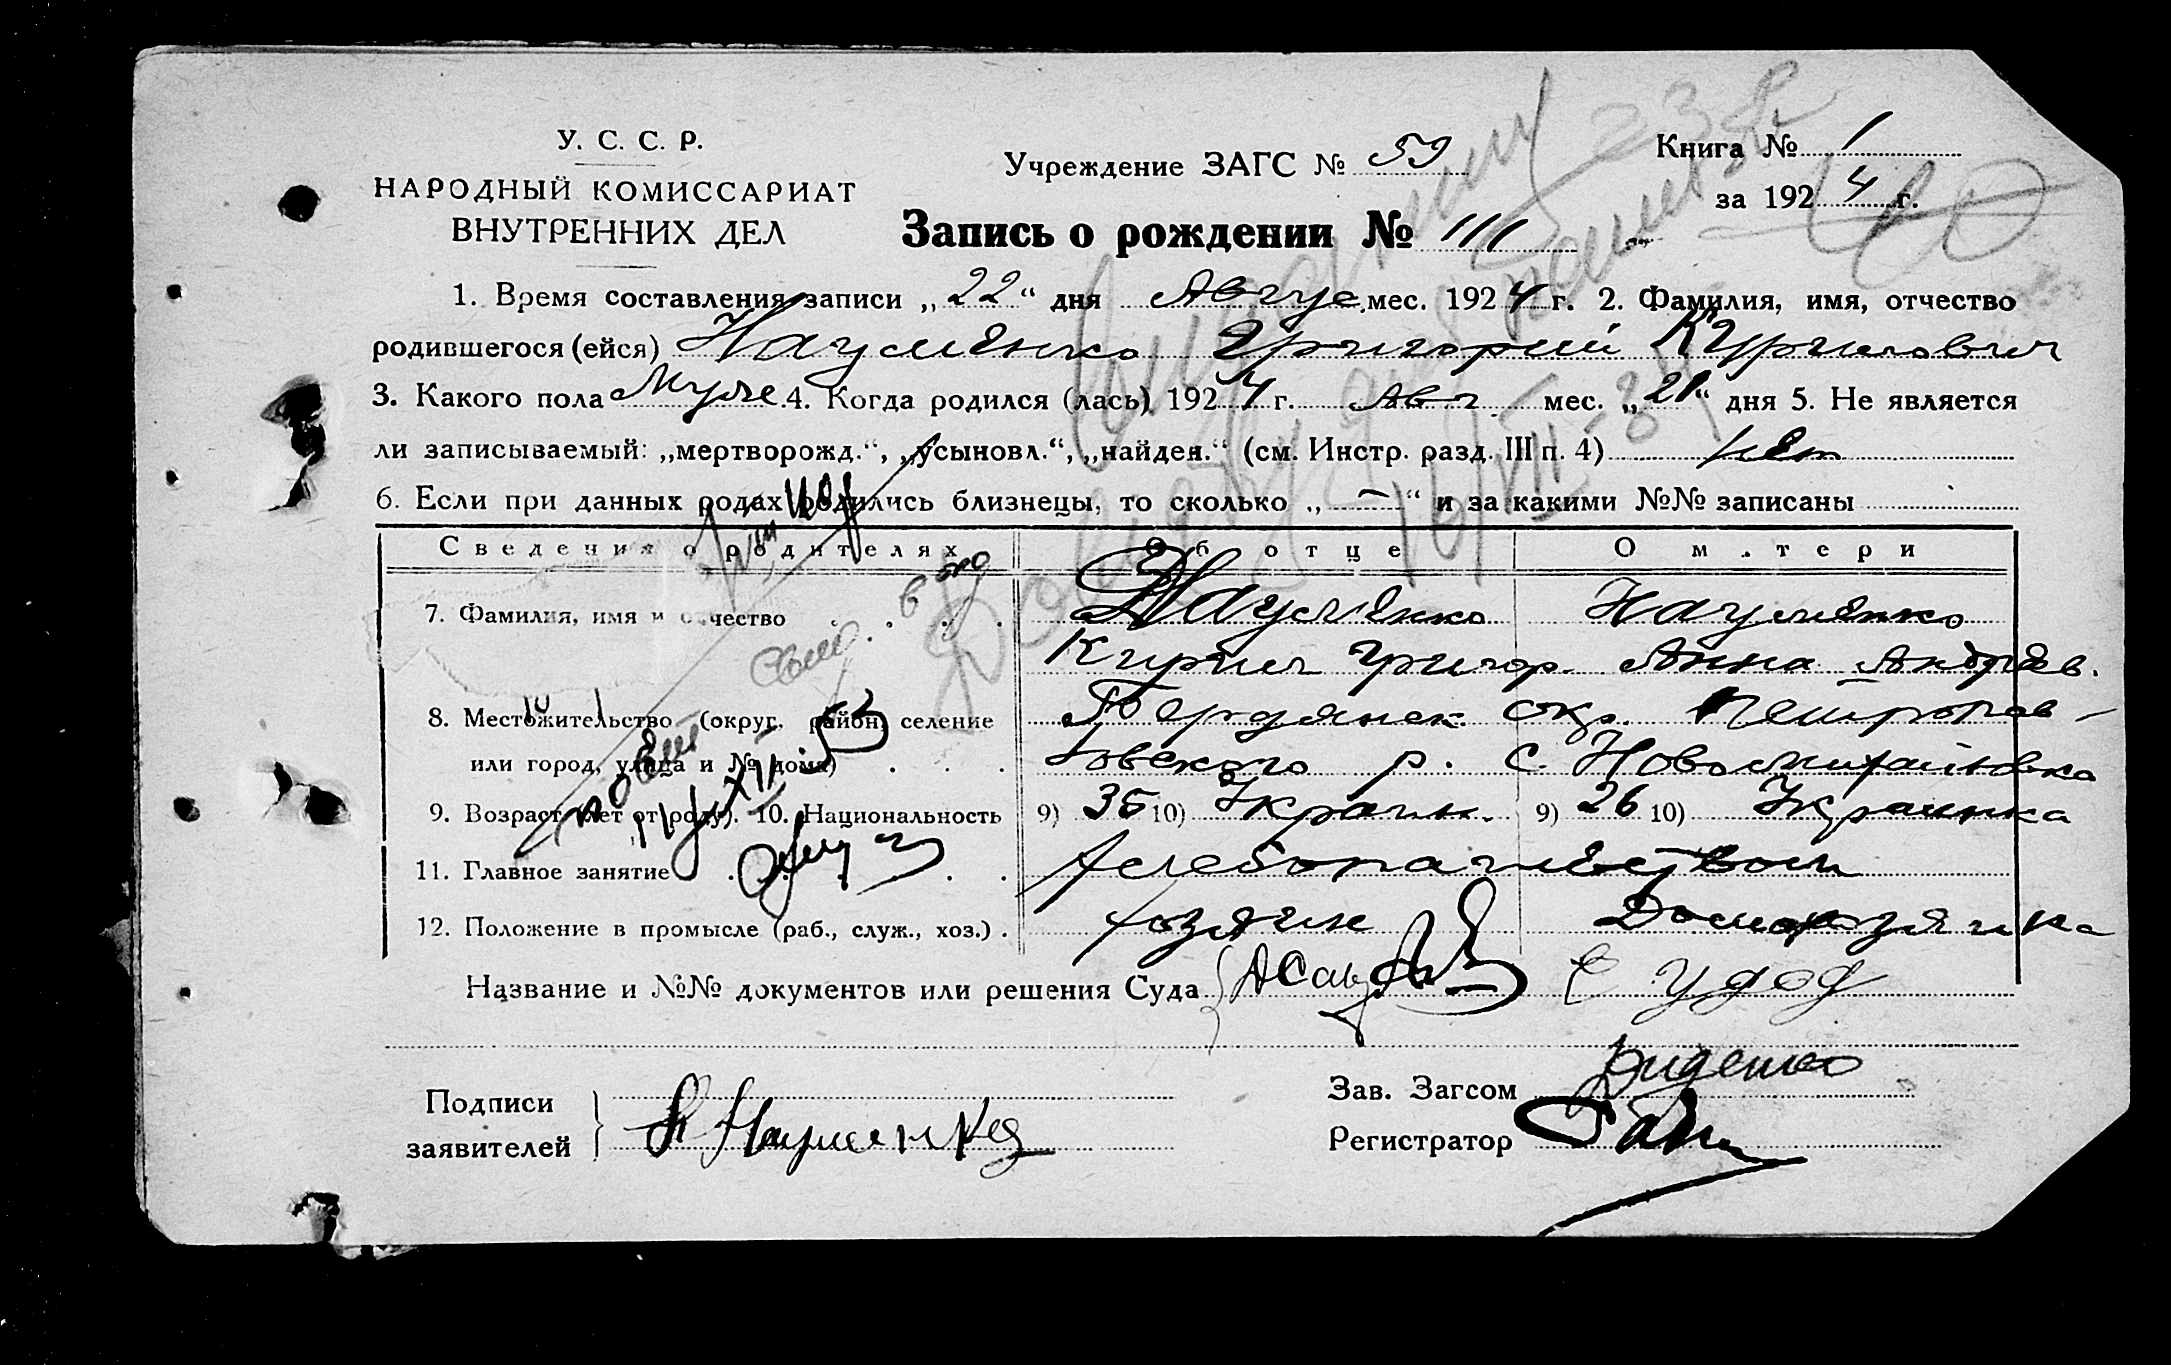 У. С. С. Р.
НАРОДНЫЙ КОМИССАРИАТ
ВНУТРЕННИХ ДЕЛ
Учреждение ЗАГС № 59
Книга № 1
за 1924 г.
Запись о рождении № 111
1. Время составления записи „22“ дня Авгус. мес. 1924 г. 2. Фамилия, имя, отчество
родившегося (ейся) Науменко Григорий Кирилович
3. Какого пола Муже. 4. Когда родился (лась) 1924 г. Авг. мес. „21“ дня 5. Не является
ли записываемый: „мертворожд.“, „усыновл.“, „найден.“ (см. Инстр. разд. III п. 4) нет
6. Если при данных родах родились близнецы, то сколько „—“ и за какими №№ записаны
Сведения о родителях Об отце О матери
7. Фамилия, имя и отчество Науменко Науменко
Кирил Григор. Анна Андрев.
8. Местожительство (округ, район, селение Бердянск окр. Петропав-
или город, улица и № дома) ловского р. с. Новомихайловка
9. Возраст (лет от роду). 10. Национальность 9) 35 10) Украин. 9) 26 10) Украинка
11. Главное занятие хлебопашеством
12. Положение в промысле (раб., служ., хоз.) хозяин Домохозяйка
Название и №№ документов или решения Суда Удод
Подписи
заявителей } Науменко
Зав. Загсом Диденко
Регистратор